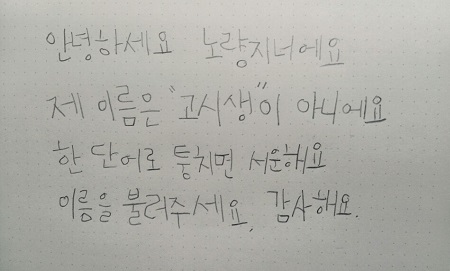 안녕하세요 노량지너에요
제 이름은 "고시생"이 아니에요
한 단어로 퉁치면 서운해요
이름을 불러주세요. 감사해요.